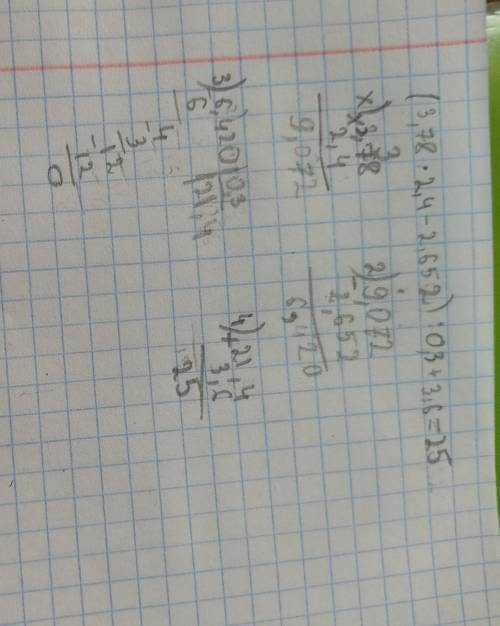 (3,78 · 2,4 - 2,652) : 0,3 + 3,6 = 25
1) 3,78
× 2,4
9,072
2) 9,072
- 2,652
6,420
3) 6,420 | 0,3
6 | 21,4
4
- 3
12
- 12
0
4) 21,4
+ 3,6
25